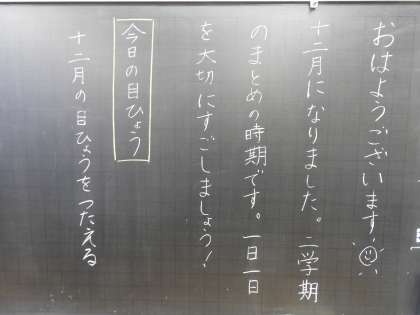 おはようございます!
十二月になりました。二学期
のまとめの時期です。一日一日
を大切にすごしましょう!
今日の目ひょう
十二月の目ひょうをつたえる